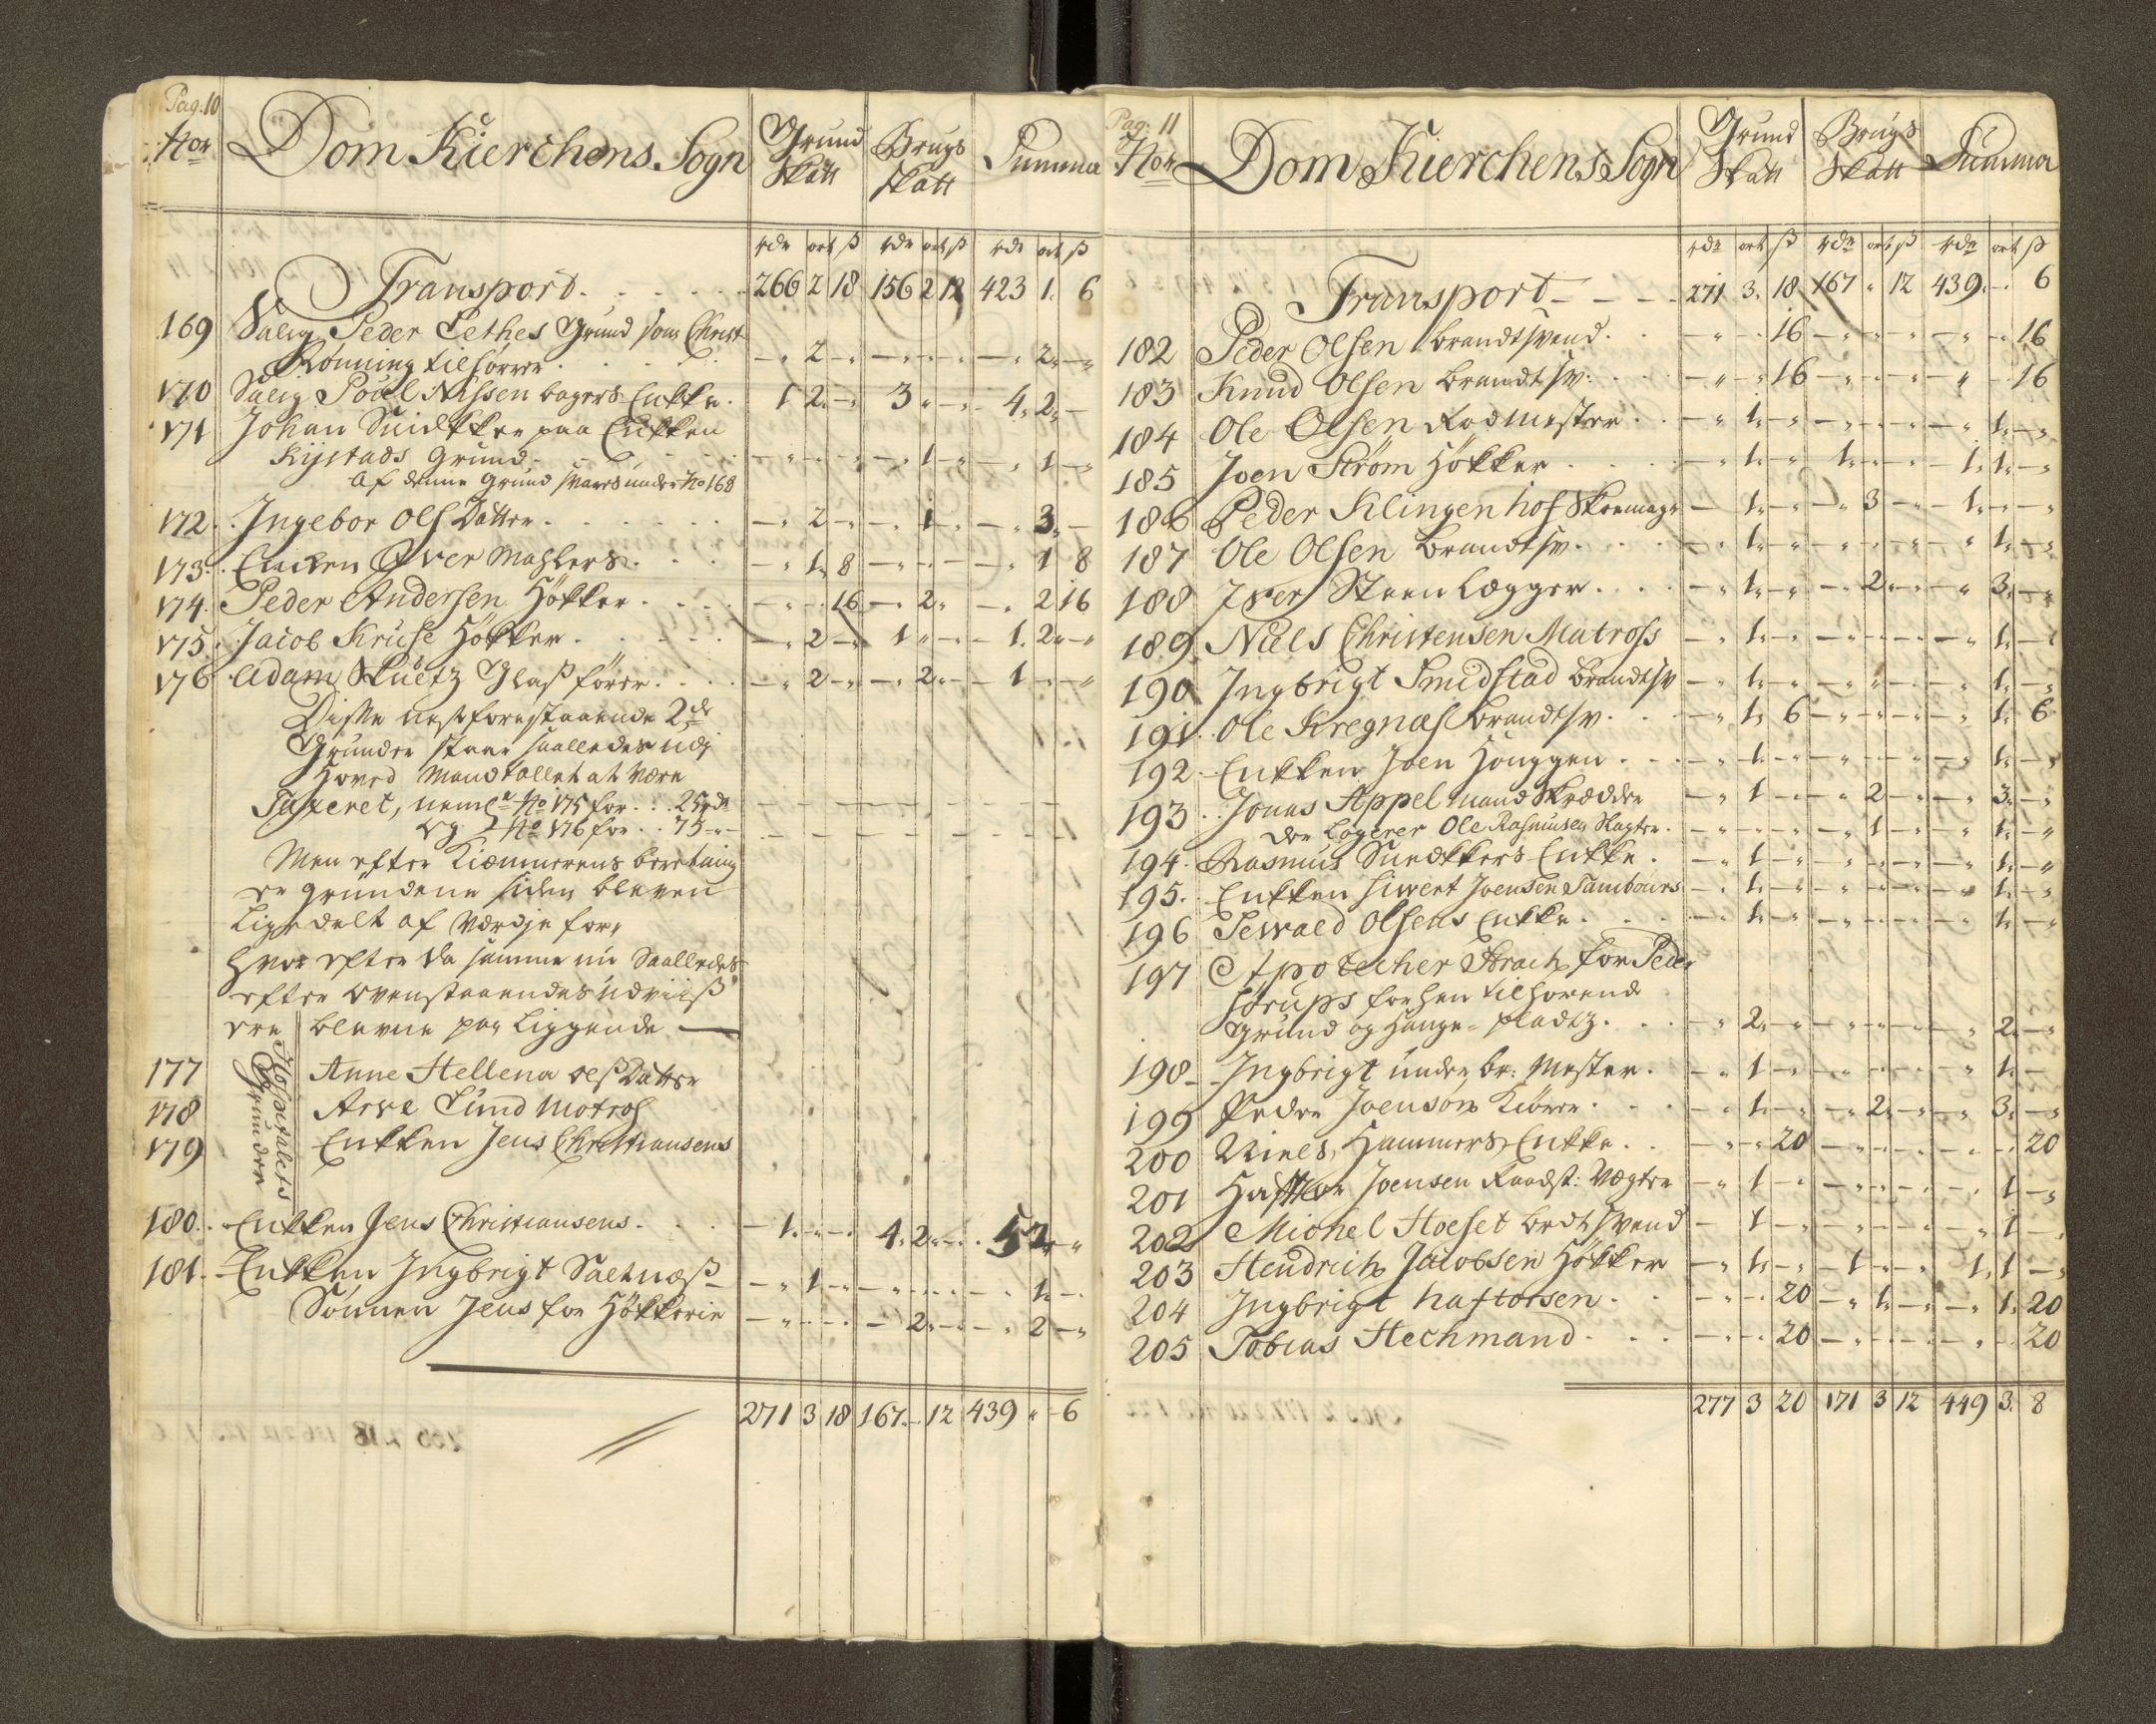 Pag: 10
Nor Dom Kierchens Sogn Grund Skatt Brugs skatt Summa
rdr ort ß rdr ort ß rdr ort ß
Transport 266 2 18 156 2 12 423 1 6
169 Salig Peder Lethes Grund som Christ
Rønning tilhörer - " 2 - " - " - " - - " 2 " - "
170 Salig Povel Nissen bagers Enkke 1 2 - " 3 " - " - 4 2 " -
171 Johan Snidkker paa Enkken
Kijstads Grund - " - " - " - " 1 - " - " 1 - "
Af denne Grund svares under No 168
172 Ingebor Ols Datter - " 2 - " - " 1 - " - " 3 " -
173 Enken Iver Mahlers - " 1 8 - " - " - - " 1 8
174 Peder Andersen Hökker - " - 16 - " 2 " - " 2 16
175 Jacob Kruse Hökker - " 2 - " 1 " - " - 1 2 " - "
176 Adam Skultz Glaß förer - " 2 - " - " 2 " - 1 " - "
Disse nest forestaaende 2de
Grunder staar saalledes udj
Hoved Mandtallet at være
Taxeret, neml. No 175 for 25 rdr
og No 176 for 75 - " -
Men efter Kiæmmerens beretning
er grundene siden bleven
Ligedelt af værdje for,
hvor efter da samme nu Saalledes
efter ovenstaaendes udviiß
ere blevne paa Liggende
Hospitalets Grunder
177 Anne Hellena Olß Datter
178 Arve Lund Motros
179 Enkken Jens Christiansens
180 Enkken Jens Christiansens - 1 " - " - 4 2 " - " 5 2 " - "
181 Enkken Ingbrigt Saetnæß - " 1 - " - " - " - " - " 1 " -
Sönnen Jens for Hökkerie - " - " - " - 2 " - " - " 2 - "
271 3 18 167 - 12 439 " 6
Pag: 11
Nor Dom Kierchens Sogn Grund Skatt Brugs Skatt Summa
rdr ort ß rdr ort ß rdr ort ß
Transport 271 3 18 167 " 12 439 - 6
182 Peder Olsen brandtsvend - " - 16 - " - " - " - " - 16
183 Knud Olsen brandtsv: - " - 16 - " - " - " - 16
184 Ole Olsen Rodmester - " 1 - " - " - " - " - " 1 - "
185 Joen Strøm Hökker - " 1 - " 1 " - " - 1 1 - "
186 Peder Klingenhof Skoemagr - 1 - " - " 3 - " - 1 " - "
187 Ole Olsen brandtsv. - " 1 - " - " - " - " 1 - "
188 Iver Steen Lægger - " 1 - " - " 2 - " - " 3 - "
189 Niels Christensen Matross - " 1 - " - " - " - " 1 - "
190 Ingbrigt Smidstad brandtsv - " 1 - " - " - " - " 1 - "
191 Ole Kregnæs brandtsv. - " 1 6 - " - " - " 1 6
192 Enkken Joen Honggen - " 1 - " - " - " - " 1 - "
193 Jonas Appelmand Skrædder - " 1 - " - " 2 - " - " 3 - "
der Logerer Ole Rasmusen Slagter - " - " - " - " 1 - " - " 1 - "
194 Rasmus Snedkkers Enkke - " 1 - " - " - " - " 1 - "
195 Enkken Siwert Joensen Tambours - " 1 - " - " - " - " 1 - "
196 Sewald Olsens Enkke - " 1 - " - " - " - " 1 - "
197 Apotecher Strach for Peder
Sørups forhen tilhorende
Grund og Hauge-pladtz - " 2 - " - " - " - " 2 - "
198 Ingbrigt under br: Mester - " 1 - " - " - " - " 1 -
199 Peder Joenson Kiörer - " 1 - " - " 2 " - " 3 - "
200 Niels Hammers Enkke - " - 20 - " - " - " - 20
201 Joensen Raadst: Vægter - " 1 - " - " - " - " 1 - "
202 Michel Hoeset brdtsvend - 1 - " - " - " - " 1 -
203 Hendrich Jacobsen Hökker - " 1 - " - 1 - " - 1 1 - "
204 Ingbrigt haftorsen - " - 20 - " 1 - " - " 1 20
205 Tobias Hechmand - " - 20 - " - " - " - 20
277 3 20 171 3 12 449 3 8